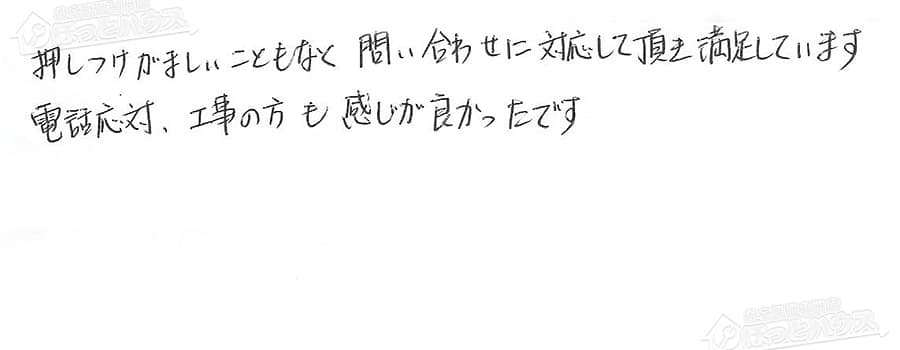 押しつけがましいこともなく 問い合わせに対応して頂き満足しています
電話応対、工事の方も 感じが良かったです
ほっとハウス
ほっとハウス